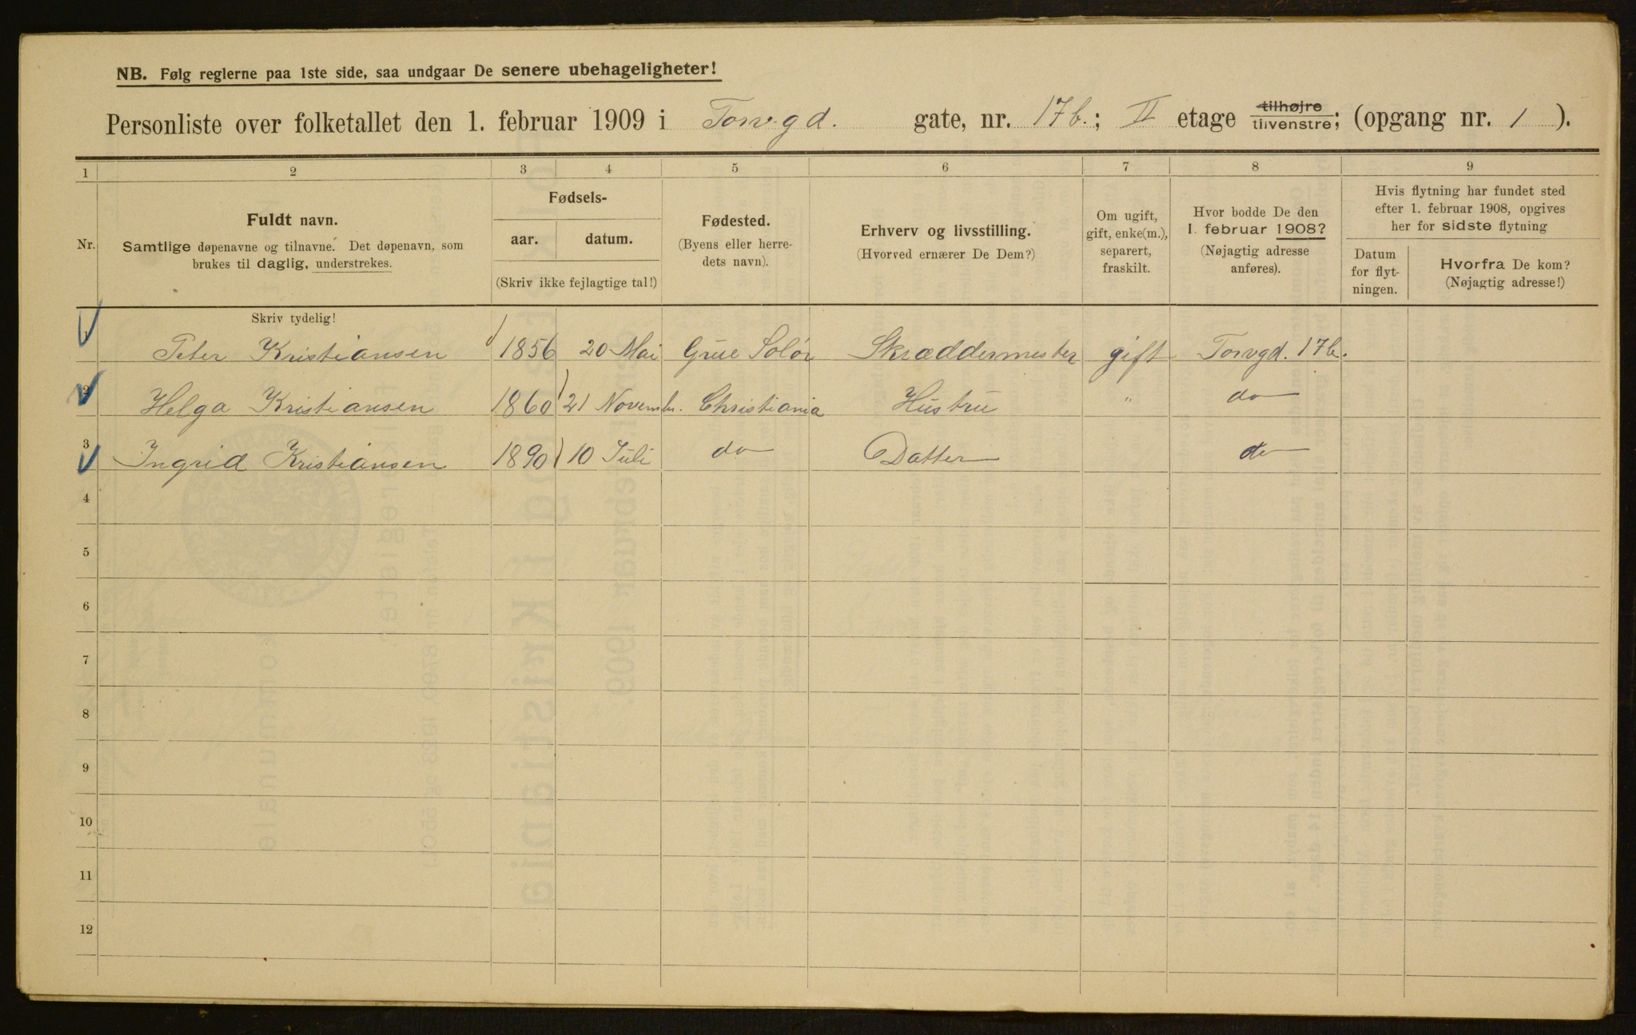 NB. Følg reglerne paa 1ste side, saa undgaar De senere ubehageligheter!
Personliste over folketallet den 1. februar 1909 i Torvgd. gate, nr. 17b.; II etage tilhøjre tilvenstre; (opgang nr. 1 ).
1 2 3 4 5 6 7 8 9
Nr.
Fuldt navn.
Samtlige døpenavne og tilnavne. Det døpenavn, som
brukes til daglig, understrekes.
Fødsels-
aar. datum.
(Skriv ikke fejlagtige tal!)
Fødested.
(Byens eller herre-
dets navn).
Erhverv og livsstilling.
(Hvorved ernærer De Dem?)
Om ugift,
gift, enke(m.),
separert,
fraskilt.
Hvor bodde De den
1. februar 1908?
(Nøjagtig adresse
anføres).
Hvis flytning har fundet sted
efter 1. februar 1908, opgives
her for sidste flytning
Datum
for flyt-
ningen.
Hvorfra De kom?
(Nøjagtig adresse!)
Skriv tydelig!
1 Peter Kristiansen 1856 20 Mai Grue Solør Skræddermester gift Torvgd. 17b.
2 Helga Kristiansen 1860 21 Novembr. Christiania Hustru " do
3 Ingrid Kristiansen 1890 10 Juli do Datter do
4
5
6
7
8
9
10
11
12